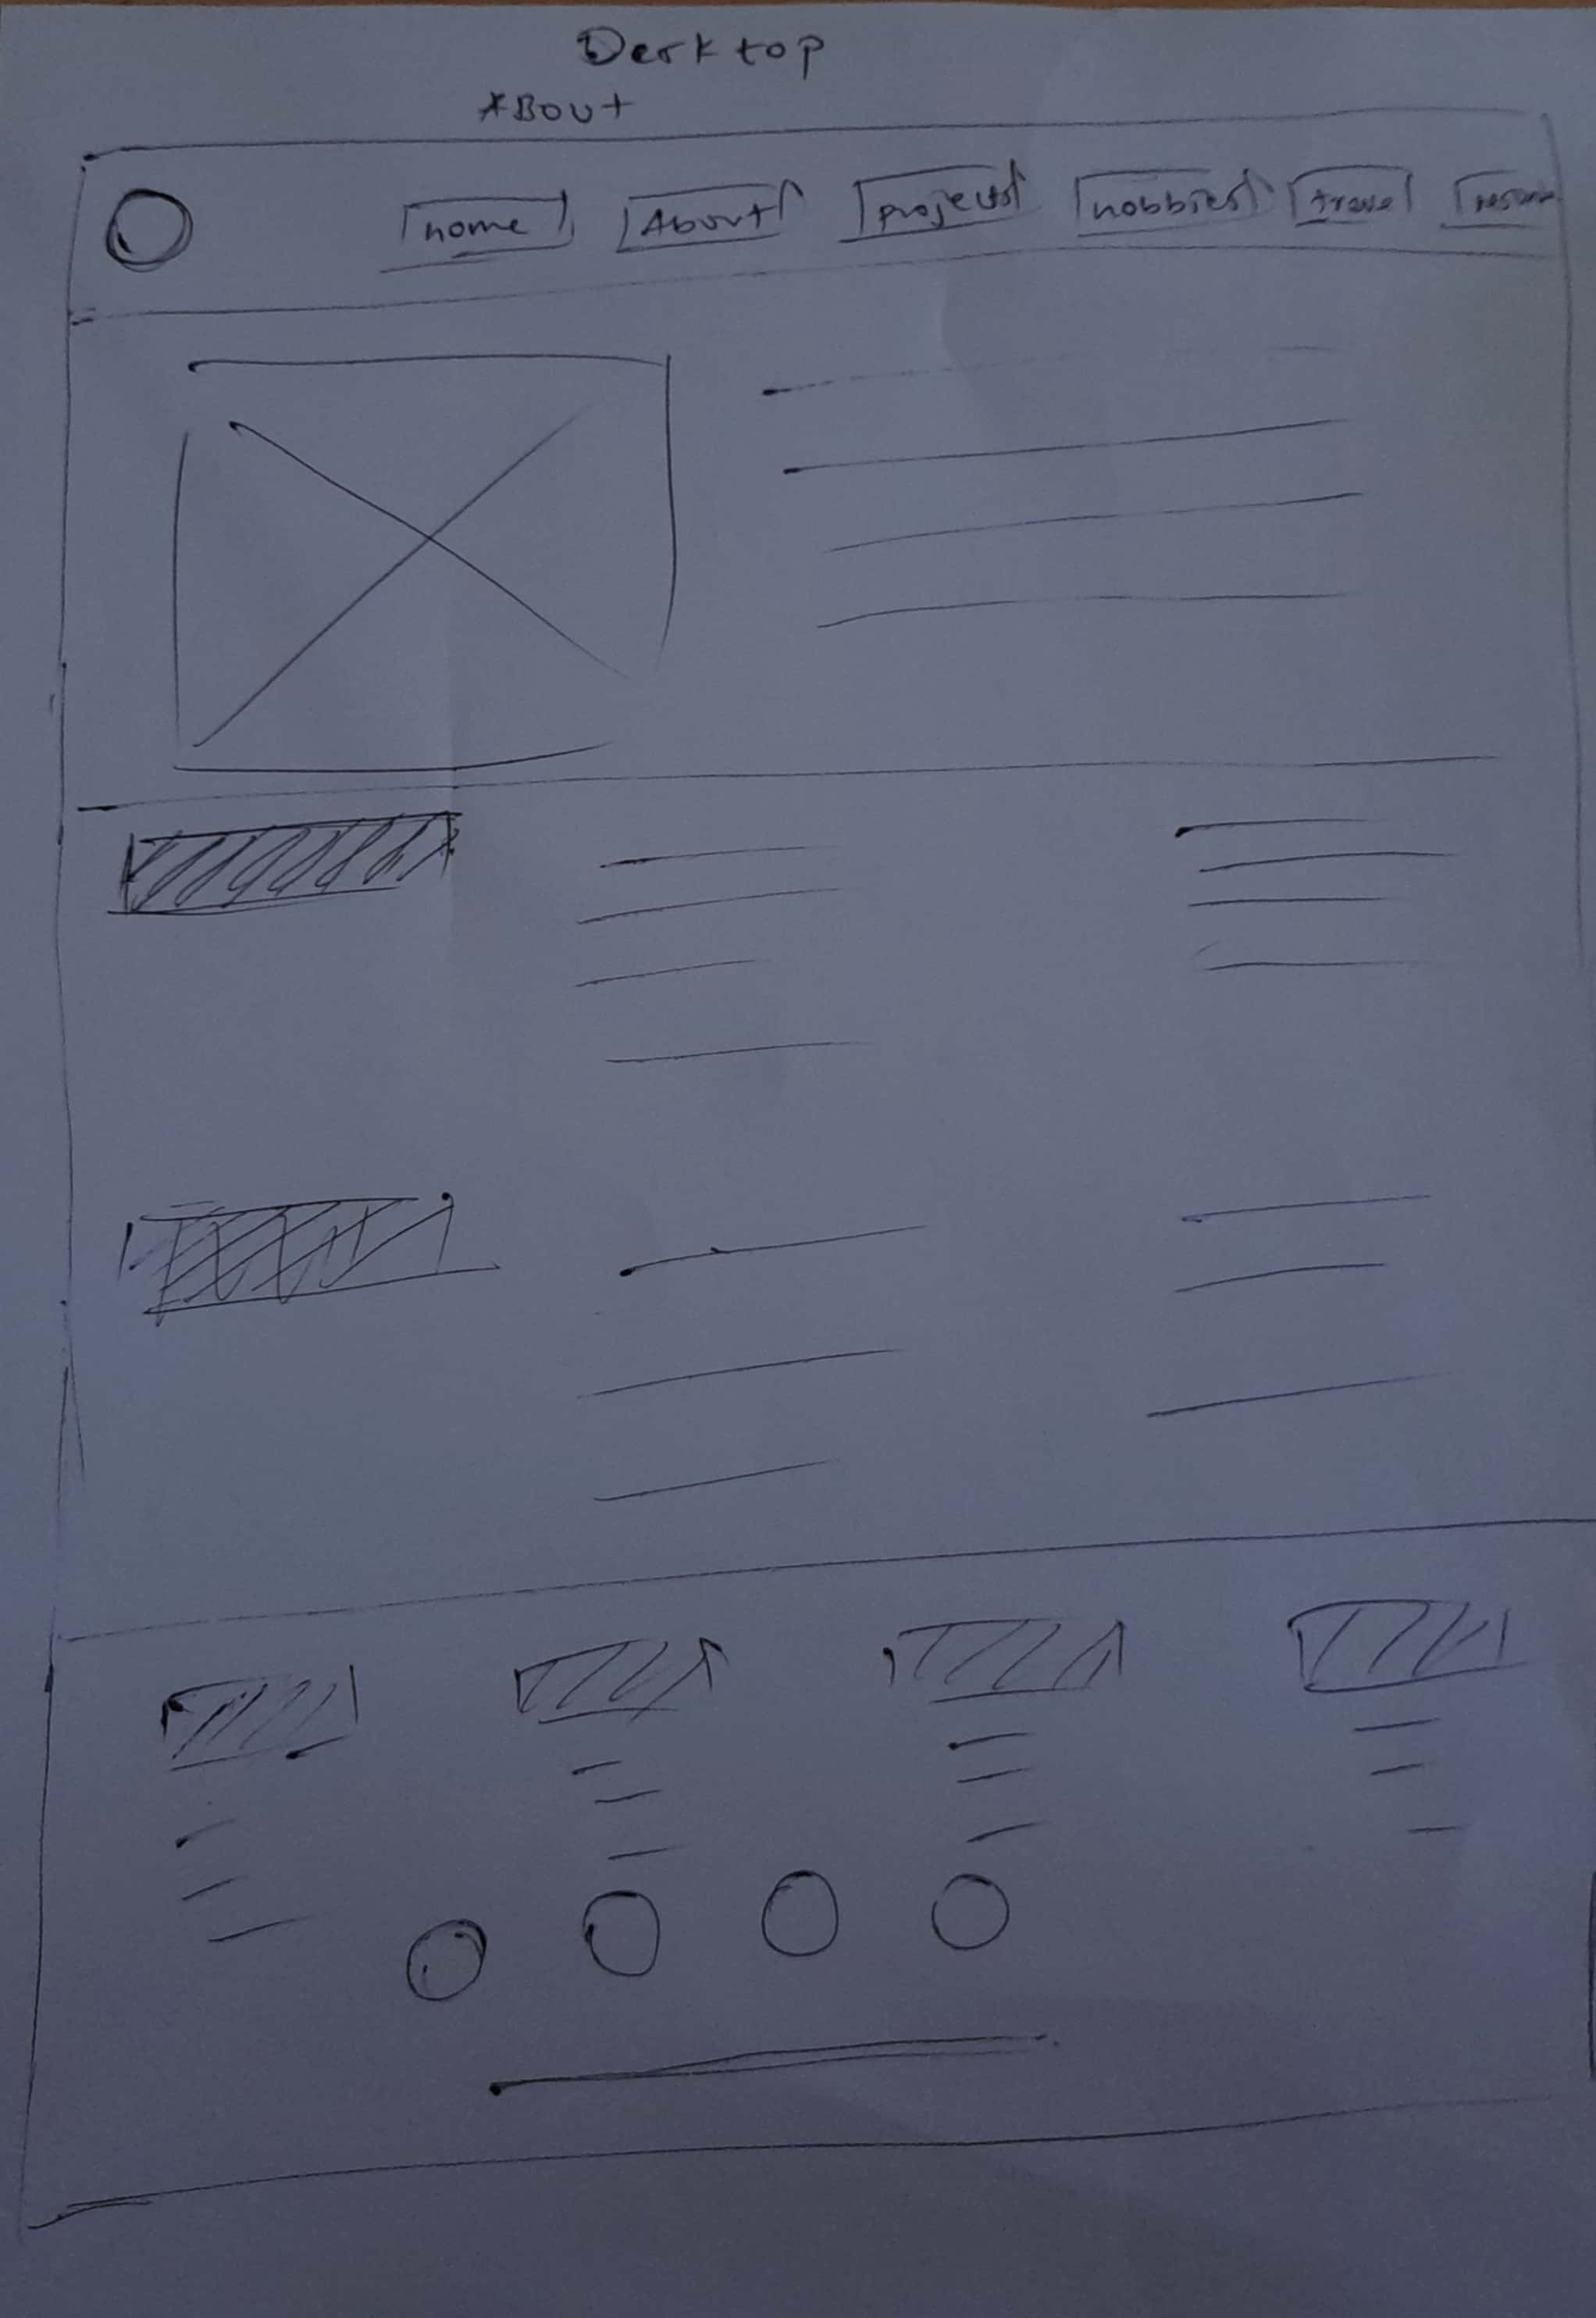 Desktop
ABout
home About projects hobbies